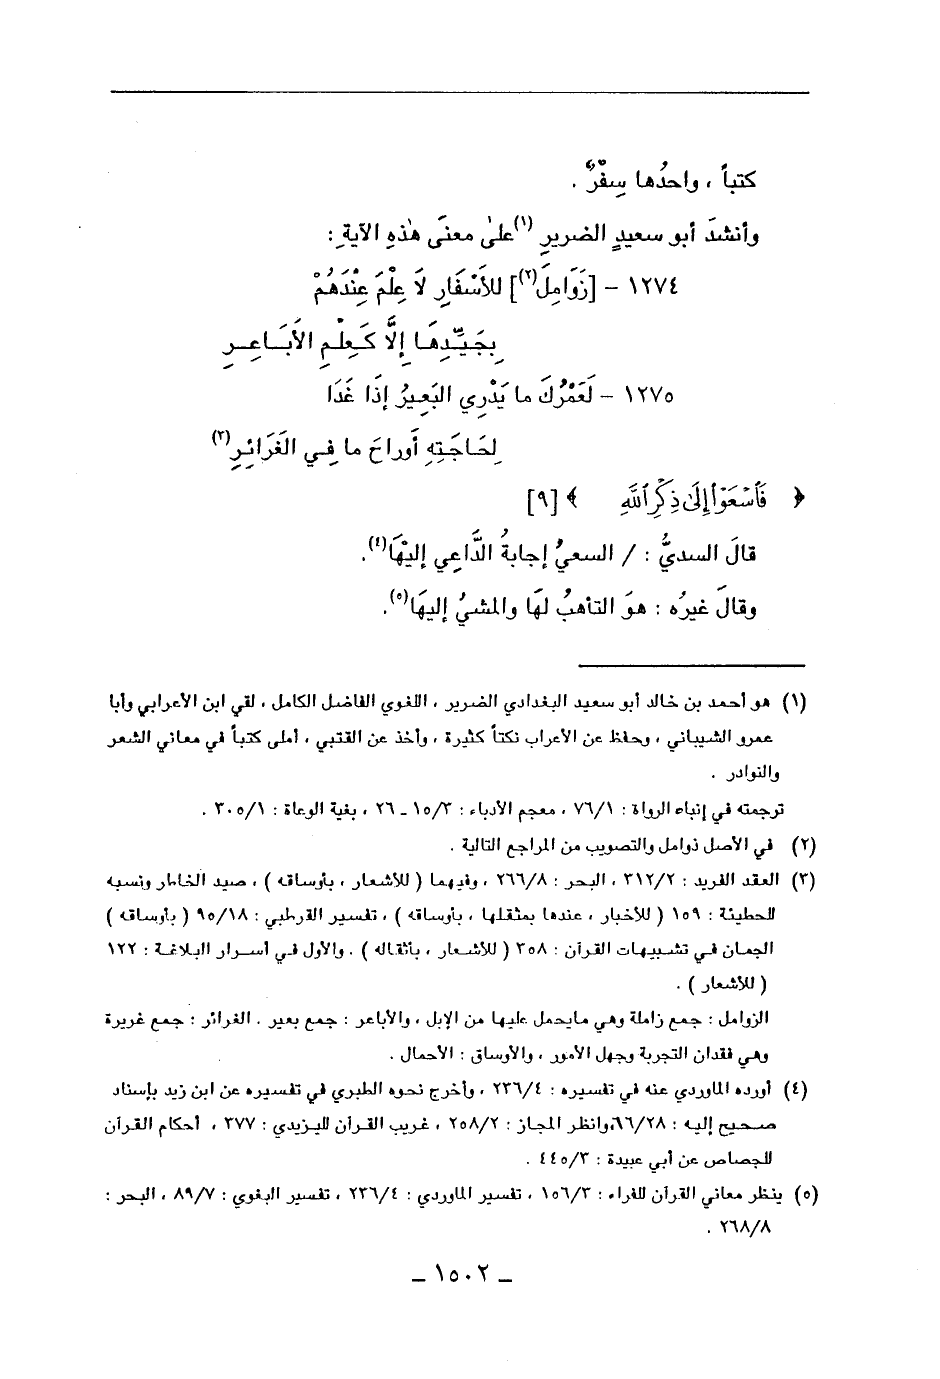 كتباً ، واحدُها سِفْرٌ .
وأنشدَ أبو سعيدٍ الضريرِ (١) علىٰ معنَى هٰذهِ الآيةِ :
١٢٧٤ - [زَوَامِلَ (٢)] للأَسْفَارِ لَا عِلْمَ عِنْدَهُمْ
بِجَيِّدِهَا إِلَّا كَعِلْمِ الأَبَاعِرِ
١٢٧٥ - لَعَمْرُكَ ما يَدْرِي البَعِيرُ إِذَا غَدَا
لِحَاجَتِهِ أَوراحَ ما فِي الغَرَائِرِ (٣)
﴿ فَٱسْعَوْا۟ إِلَىٰ ذِكْرِ ٱللَّهِ ﴾ [٩]
قالَ السديُّ : / السعيُ إجابةُ الدَّاعِي إليْهَا (٤).
وقالَ غيرُه : هوَ التأهبُ لهَا والمشيُ إليهَا (٥).
(١) هو أحمد بن خالد أبو سعيد البغدادي الضرير ، اللغوي الفاضل الكامل ، لقي ابن الأعرابي وأبا
عمرو الشيباني ، وحفظ عن الأعراب نكتاً كثيرة ، وأخذ عن القتبي ، أملى كتباً في معاني الشعر
والنوادر .
ترجمته في إنباه الرواة : ٧٦/١ ، معجم الأدباء : ١٥/٣ ـ ٢٦ ، بغية الوعاة : ٣٠٥/١ .
(٢) في الأصل ذوامل والتصويب من المراجع التالية .
(٣) العقد الفريد : ٣١٢/٢ ، البحر : ٢٦٦/٨ ، وفيهما ( للأشعار ، بأوساقه ) ، صيد الخاطر ونسبه
للحطيئة : ١٥٩ ( للأخبار ، عندها بمثقلها ، بأوساقه ) ، تفسير القرطبي : ٩٥/١٨ ( بأوساقه )
الجمان في تشبيهات القرآن : ٣٥٨ ( للأشعار ، بأثقاله ) . والأول في أسرار البلاغة : ١٢٢
( للأشعار ) .
الزوامل : جمع زاملة وهي مايحمل عليها من الإبل ، والأباعر : جمع بعير . الغرائر : جمع غريرة
وهي فقدان التجربة وجهل الأمور ، والأوساق : الأحمال .
(٤) أورده الماوردي عنه في تفسيره : ٢٣٦/٤ ، وأخرج نحوه الطبري في تفسيره عن ابن زيد بإسناد
صحيح إليه : ٦٦/٢٨، وانظر المجاز : ٢٥٨/٢ ، غريب القرآن لليزيدي : ٣٧٧ ، أحكام القرآن
للجصاص عن أبي عبيدة : ٤٤٥/٣ .
(٥) ينظر معاني القرآن للفراء : ١٥٦/٣ ، تفسير الماوردي : ٢٣٦/٤ ، تفسير البغوي : ٨٩/٧ ، البحر :
٢٦٨/٨ .
ـ ١٥٠٢ ـ